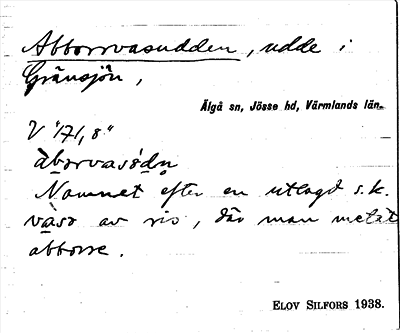 Abborrvasudden, udde i
Gränsjön,
Älgå sn, Jösse hd, Värmlands län.
V "/71, 8"
Namnet efter en utlagd s.k.
vase av ris, där man metat
abborre.
ELOV SILFORS 1938.